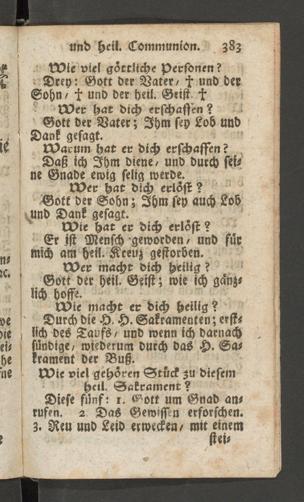 und heil. Communion. 383
Wie viel göttliche Personen?
Drey: Gott der Vater/ † und der
Sohn/ † und der heil. Geist. †
Wer hat dich erschaffen?
Gott der Vater; Ihm sey Lob und
Dank gesagt.
Warum hat er dich erschaffen?
Daß ich Ihm diene/ und durch sei-
ne Gnade ewig selig werde.
Wer hat dich erlöst?
Gott der Sohn; Ihm sey auch Lob
und Dank gesagt.
Wie hat er dich erlöst?
Er ist Mensch geworden/ und für
mich am heil. Kreuz gestorben.
Wer macht dich heilig?
Gott der heil. Geist; wie ich gänz-
lich hoffe.
Wie macht er dich heilig?
Durch die H. H. Sakramenten; erst-
lich des Taufs/ und wenn ich darnach
sündige/ wiederum durch das H. Sa-
krament der Buß.
Wie viel gehören Stück zu diesem
heil. Sakrament?
Diese fünf: 1. Gott um Gnad an-
rufen. 2. Das Gewissen erforschen.
3. Reu und Leid erwecken/ mit einem
stei-